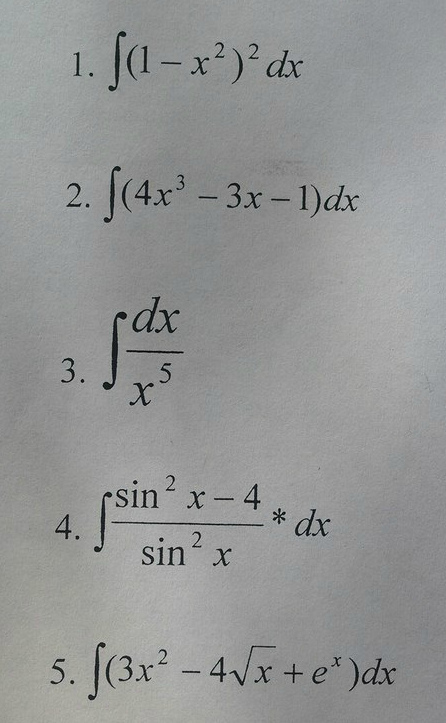 1. ∫(1 − x²)² dx
2. ∫(4x³ − 3x − 1)dx
3. ∫ dx / x⁵
4. ∫ (sin² x − 4) / (sin² x) * dx
5. ∫(3x² − 4√x + eˣ)dx